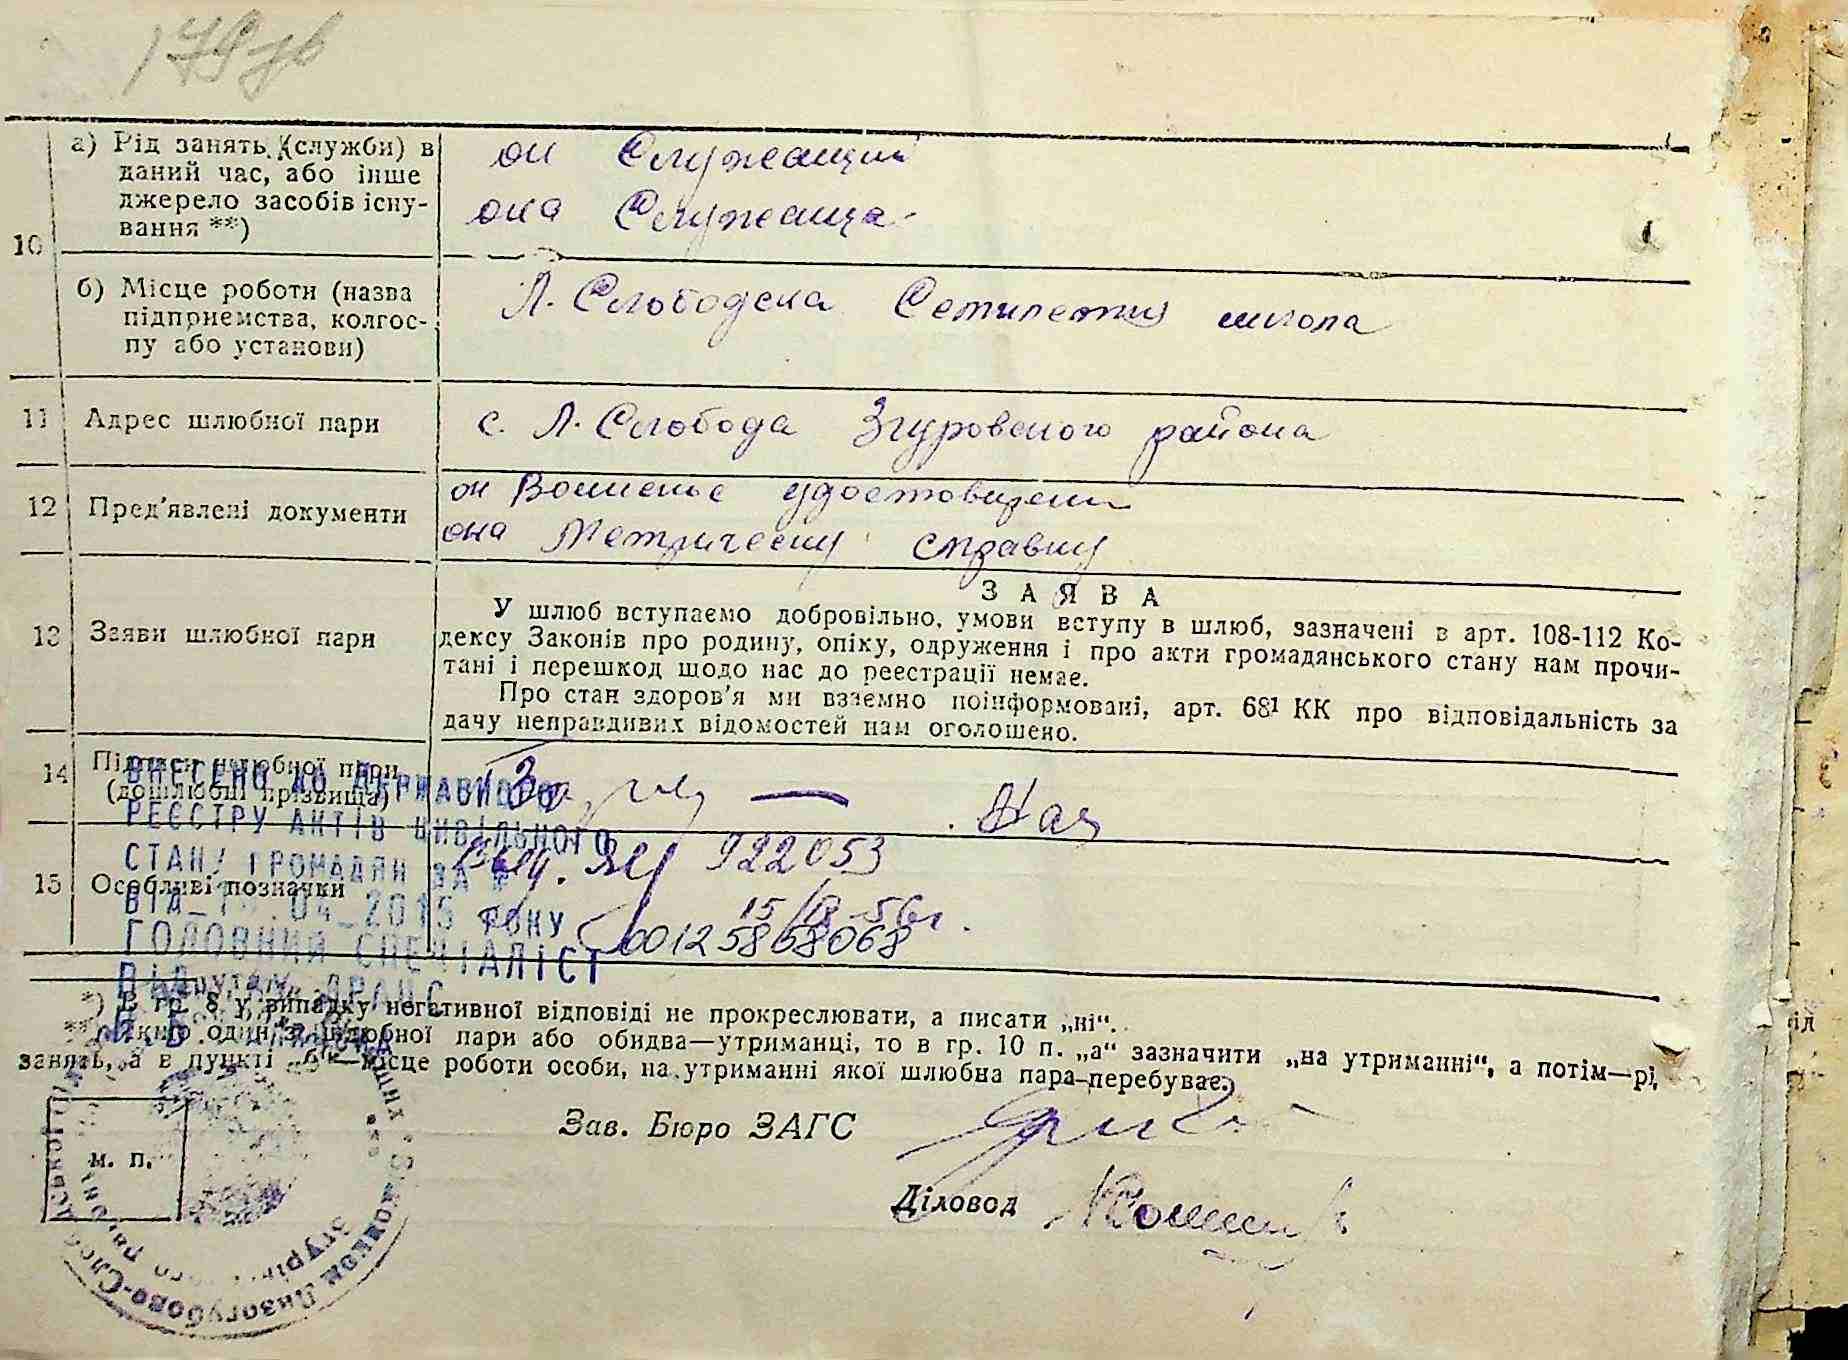 179 зв
10 а) Рід занять (служби) в
даний час, або інше
джерело засобів існу-
вання **)
он Служащий
она Служаща
б) Місце роботи (назва
підприємства, колгос-
пу або установи)
Л. Слободска Семилетня школа
11 Адрес шлюбної пари
с. Л. Слобода Згуровского района
12 Пред'явлені документи
он Военное удостоверени
она Метрическу справку
13 Заяви шлюбної пари
ЗАЯВА
У шлюб вступаємо добровільно, умови вступу в шлюб, зазначені в арт. 108-112 Ко-
дексу Законів про родину, опіку, одруження і про акти громадянського стану нам прочи-
тані і перешкод щодо нас до реєстрації немає.
Про стан здоров'я ми взаємно поінформовані, арт. 68¹ КК про відповідальність за
дачу неправдивих відомостей нам оголошено.
14 Підписи шлюбної пари
(дошлюбні прізвища)
ВНЕСЕНО ДО ДЕРЖАВНОГО
РЕЄСТРУ АКТІВ ЦИВІЛЬНОГО
СТАНУ ГРОМАДЯН ЗА №
ВІД 04 2015 РОКУ
ГОЛОВНИЙ СПЕЦІАЛІСТ
15 Особливі позначки
922053
15/ -56г.
00125868068
*) В гр. 8 у випадку негативної відповіді не прокреслювати, а писати „ні“.
**) Якщо один з шлюбної пари або обидва—утриманці, то в гр. 10 п. „а“ зазначити „на утриманні“, а потім—рід
занять, а в пункті „б“—місце роботи особи, на утриманні якої шлюбна пара перебуває.
Зав. Бюро ЗАГС
м. п.
Діловод